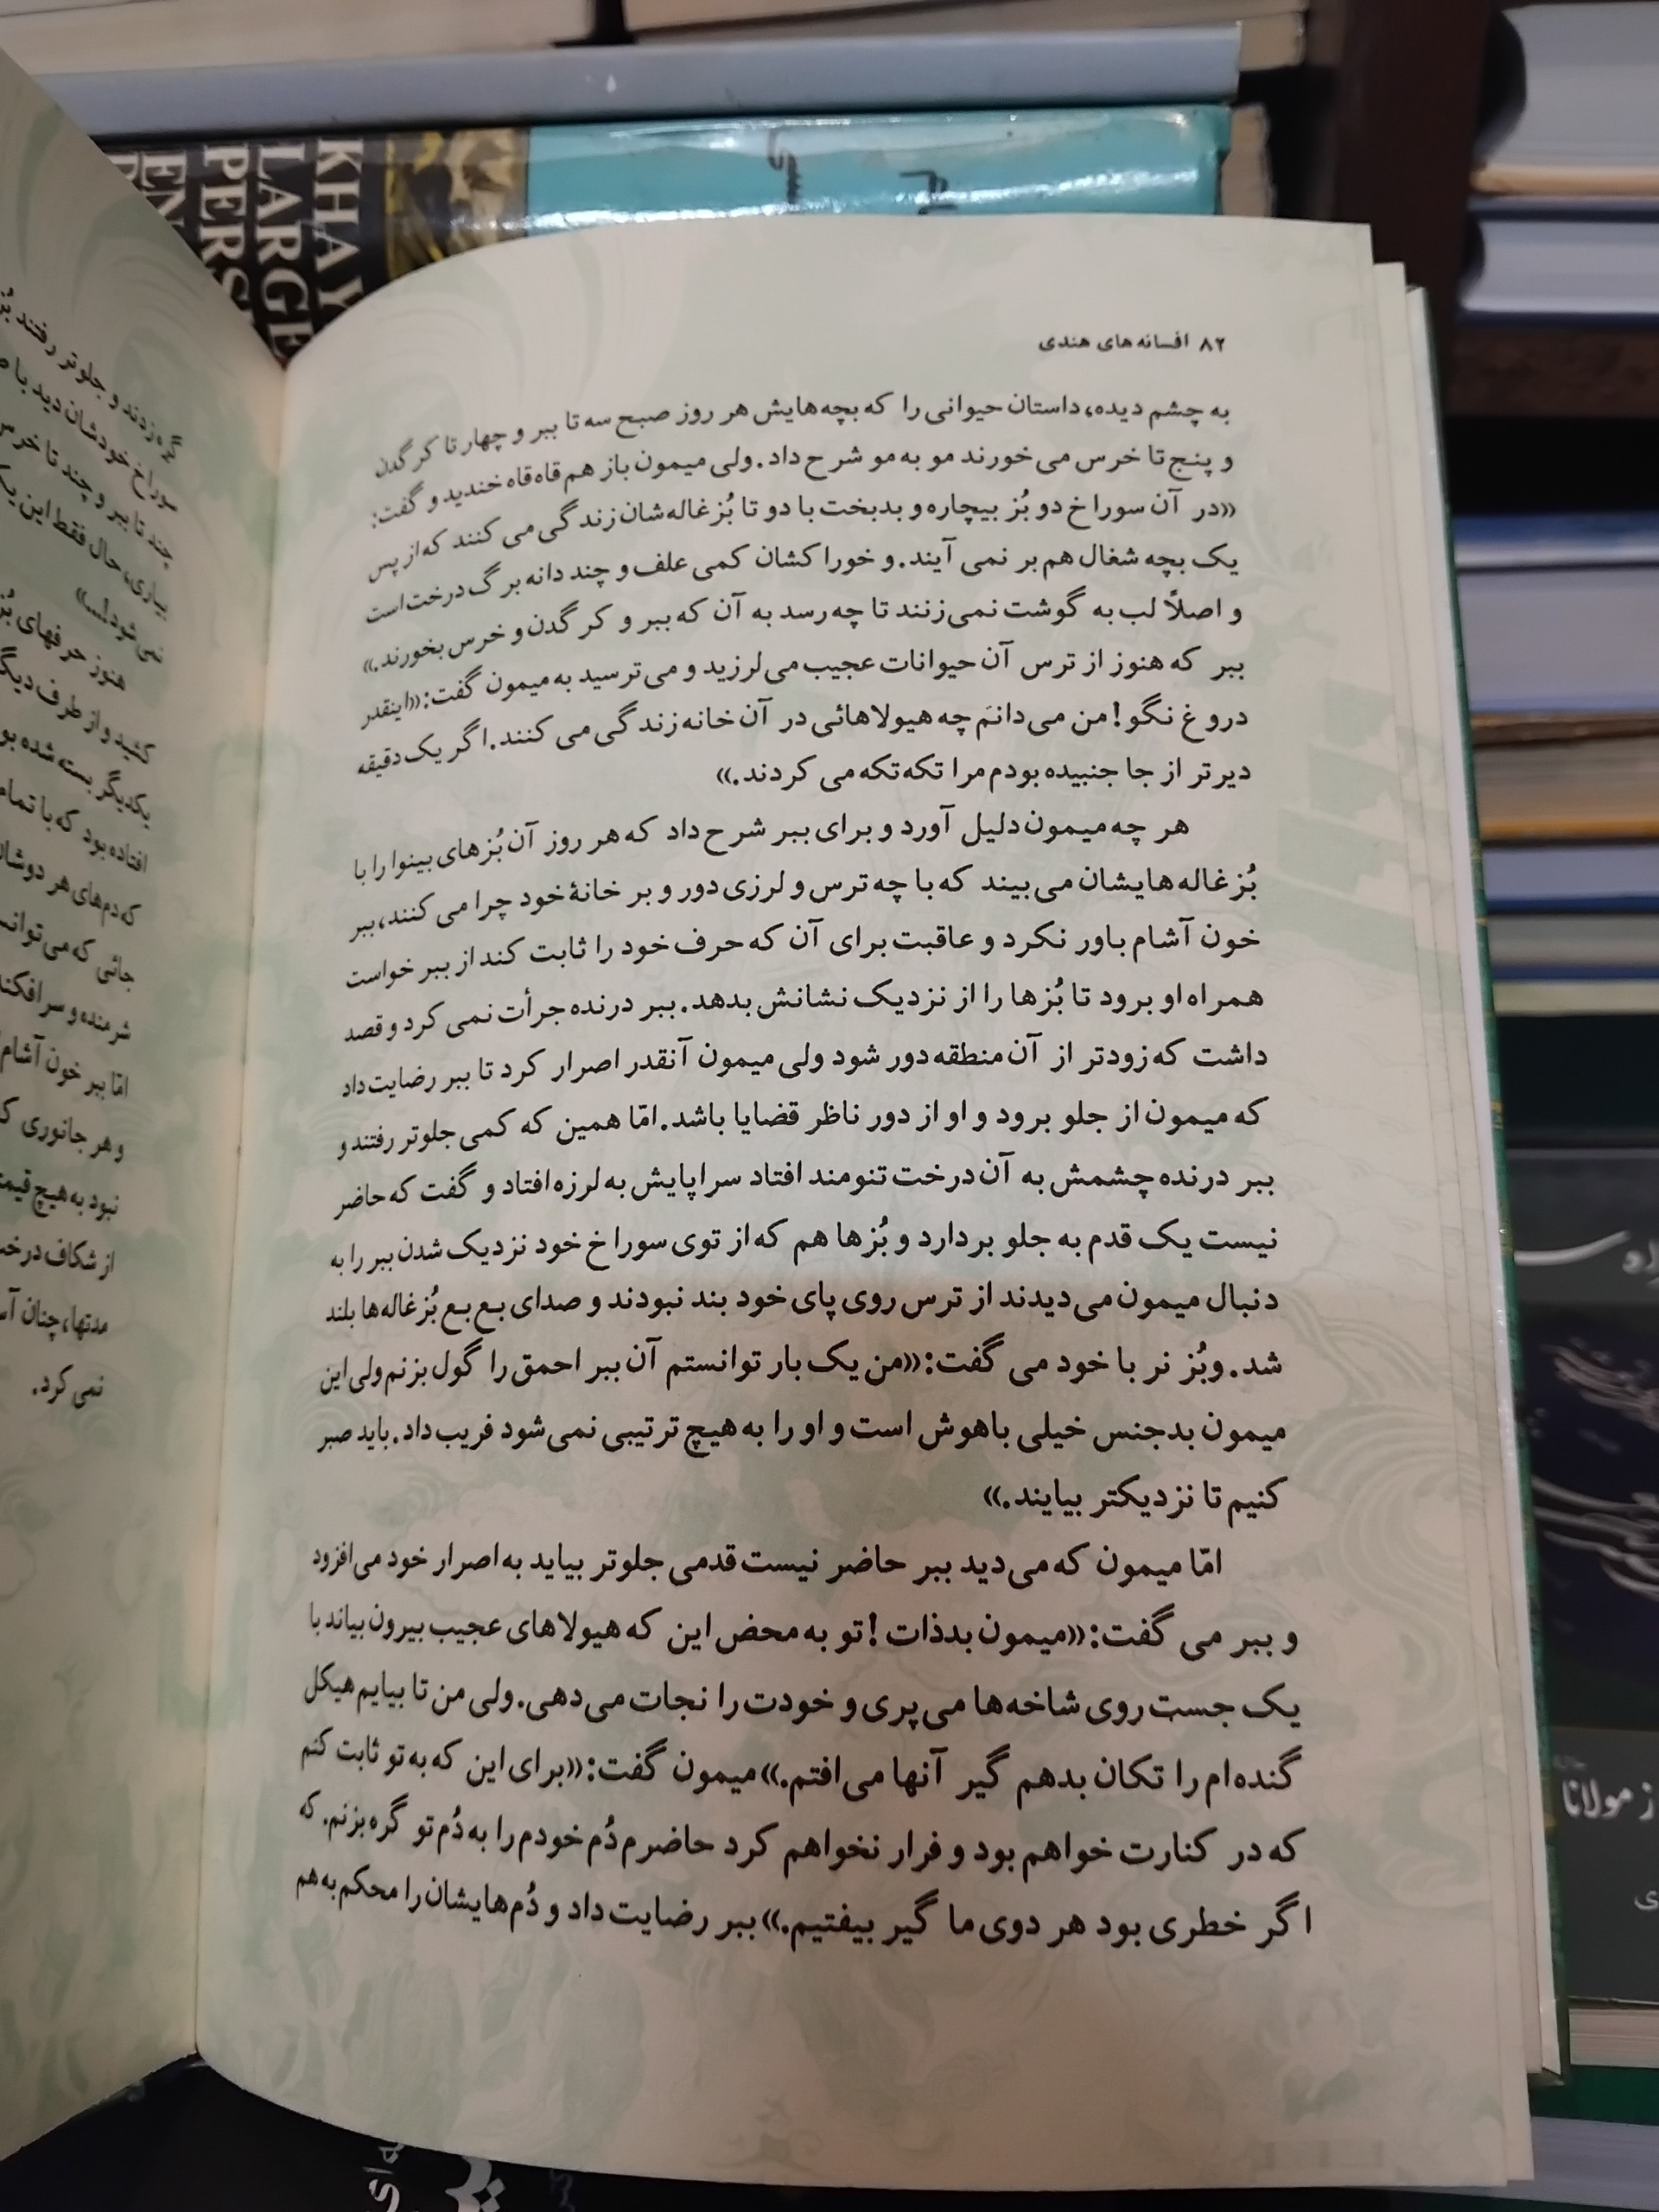 ۸۲ افسانه‌های هندی
به چشم دیده، داستان حیوانی را که بچه‌هایش هر روز صبح سه تا ببر و چهار تا کرگدن
و پنج تا خرس می‌خورند مو به مو شرح داد. ولی میمون باز هم قاه‌قاه خندید و گفت:
«در آن سوراخ دو بُز بیچاره و بدبخت با دو تا بُزغاله‌شان زندگی می‌کنند که از پس
یک بچه شغال هم بر نمی‌آیند. و خوراکشان کمی علف و چند دانه برگ درخت است
و اصلاً لب به گوشت نمی‌زنند تا چه رسد به آن که ببر و کرگدن و خرس بخورند.»
ببر که هنوز از ترس آن حیوانات عجیب می‌لرزید و می‌ترسید به میمون گفت: «اینقدر
دروغ نگو! من می‌دانم چه هیولاهائی در آن خانه زندگی می‌کنند. اگر یک دقیقه
دیرتر از جا جنبیده بودم مرا تکه تکه می‌کردند.»
هر چه میمون دلیل آورد و برای ببر شرح داد که هر روز آن بُزهای بینوا را با
بُزغاله‌هایشان می‌بیند که با چه ترس و لرزی دور و بر خانهٔ خود چرا می‌کنند، ببر
خون آشام باور نکرد و عاقبت برای آن که حرف خود را ثابت کند از ببر خواست
همراه او برود تا بُزها را از نزدیک نشانش بدهد. ببر درنده جرأت نمی‌کرد و قصد
داشت که زودتر از آن منطقه دور شود ولی میمون آنقدر اصرار کرد تا ببر رضایت داد
که میمون از جلو برود و او از دور ناظر قضایا باشد. امّا همین که کمی جلوتر رفتند و
ببر درنده چشمش به آن درخت تنومند افتاد سراپایش به لرزه افتاد و گفت که حاضر
نیست یک قدم به جلو بردارد و بُزها هم که از توی سوراخ خود نزدیک شدن ببر را به
دنبال میمون می‌دیدند از ترس روی پای خود بند نبودند و صدای بع بع بُزغاله‌ها بلند
شد. و بُز نر با خود می گفت: «من یک بار توانستم آن ببر احمق را گول بزنم ولی این
میمون بدجنس خیلی باهوش است و او را به هیچ ترتیبی نمی‌شود فریب داد. باید صبر
کنیم تا نزدیکتر بیایند.»
امّا میمون که می‌دید ببر حاضر نیست قدمی جلوتر بیاید به اصرار خود می‌افزود
و ببر می گفت: «میمون بدذات! تو به محض این که هیولاهای عجیب بیرون بیاند با
یک جست روی شاخه‌ها می‌پری و خودت را نجات می‌دهی. ولی من تا بیایم هیکل
گنده‌ام را تکان بدهم گیر آنها می‌افتم.» میمون گفت: «برای این که به تو ثابت کنم
که در کنارت خواهم بود و فرار نخواهم کرد حاضرم دُم خودم را به دُم تو گره بزنم. که
اگر خطری بود هر دوی ما گیر بیفتیم.» ببر رضایت داد و دُم‌هایشان را محکم به هم
گره زدند و جلوتر رفتند
سوراخ خودشان دید با
چند تا ببر و چند تا خرس
بیاری، حال فقط این یک
نمی‌شود!...»
هنوز حرفهای
کشید و از طرف دیگر
یکدیگر بسته شده
افتاده بود که با تمام
که دم‌های هر دوشان
جائی که می‌توانست
شرمنده و سرافکنده
امّا ببر خون آشام
و هر جانوری
نبود به هیچ قیمت
از شکاف درخت
مدتها، چنان
نمی‌کرد.
KHAY
LARGE
PERS
EN
ز مولانا